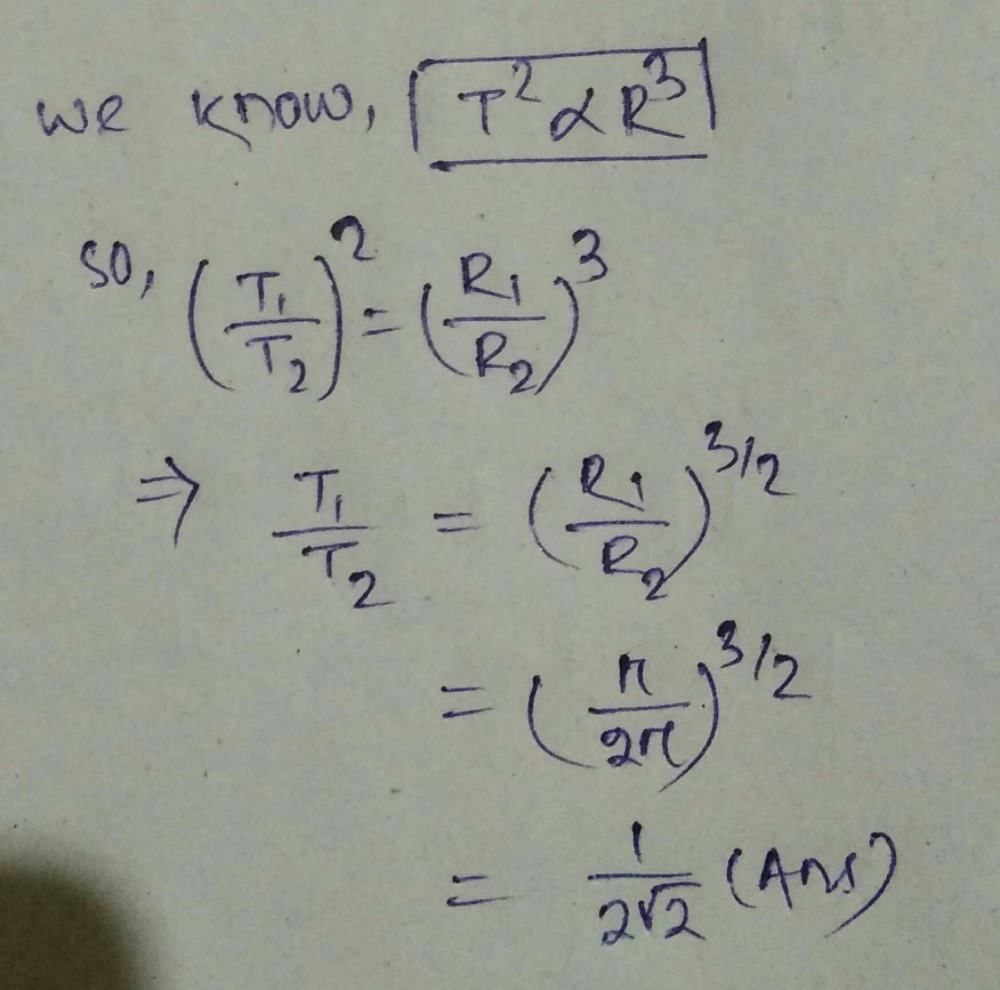 we know, T² ∝ R³
so, (T₁/T₂)² = (R₁/R₂)³
⇒ T₁/T₂ = (R₁/R₂)^3/2
= (r/2r)^3/2
= 1/2√2 (Ans)